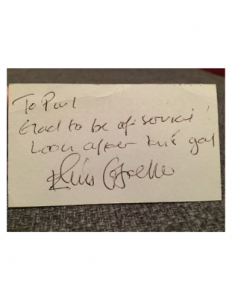 To Paul
Glad to be of service!
Look after this gal
Elvis Costello